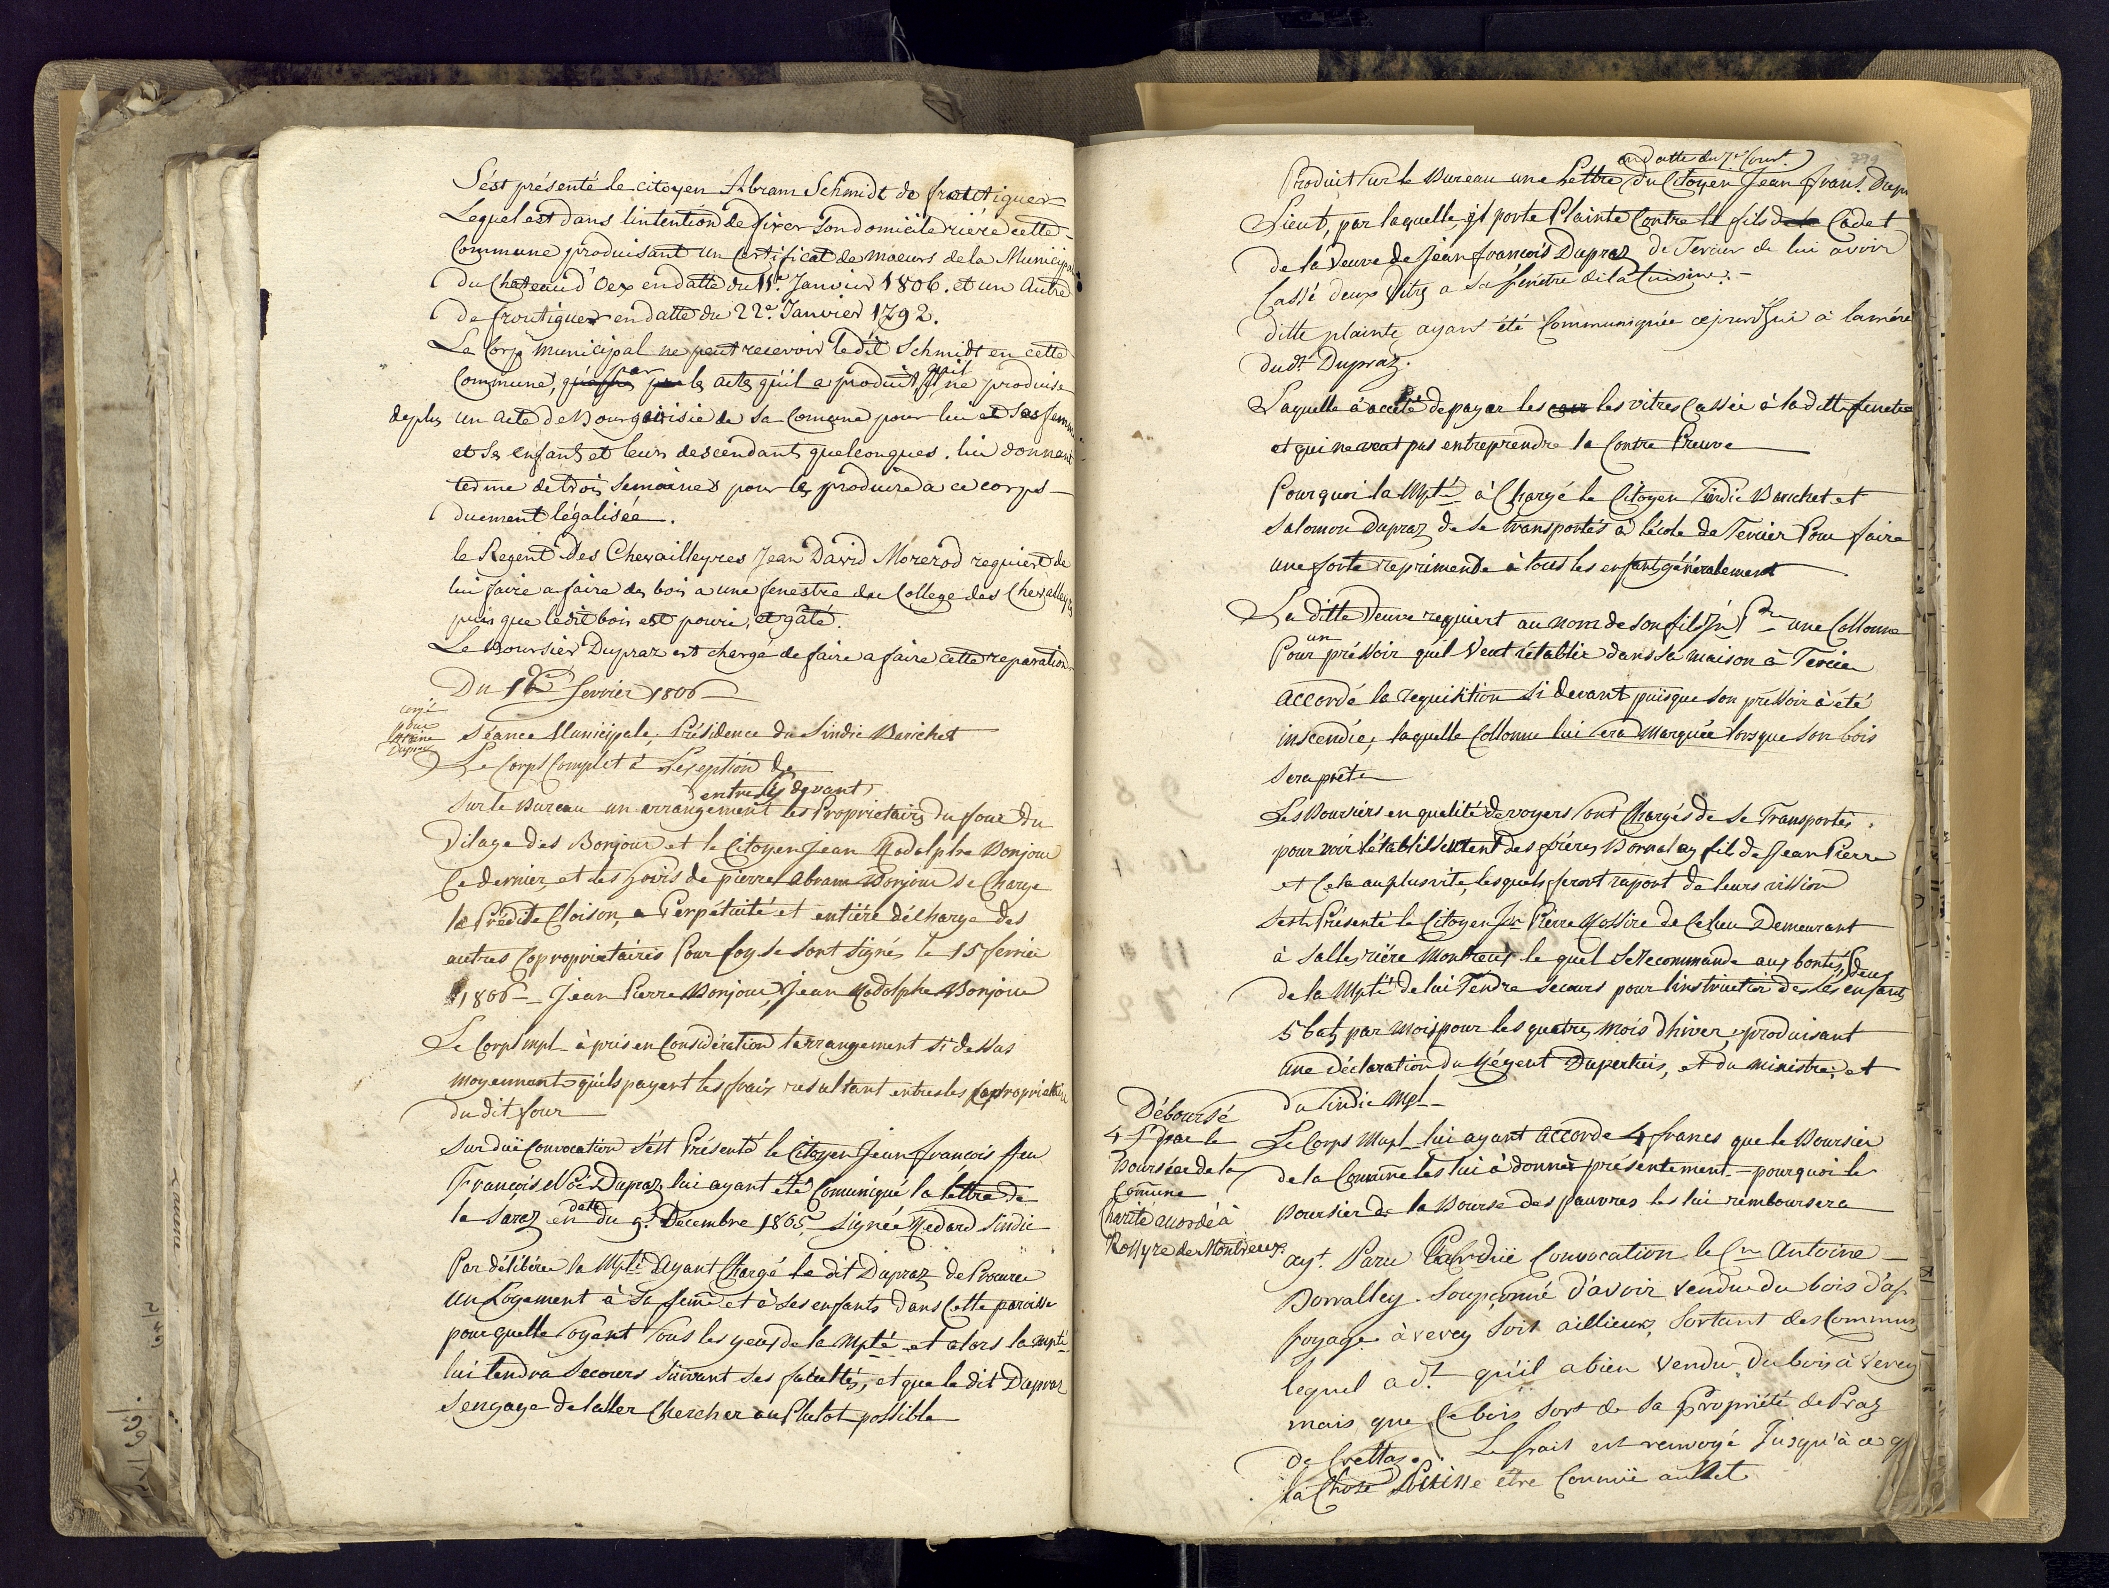 S'est présenté le citoyen Abram Schmidt de frontigues
Lequel est dans lintention de fixer son domicile riére cette
Commune produisant un Certificat de moeurs de la Municipa
du Chateau d'Oex en datte du 11e. Janvier 1806. et un Autre
de froutigues en datte du 22e. Janvier 1792.
Le Corp municipal ne peut recevoir ledit Schmidt en cette
Commune, par les actes qu'il a produit qu'il ne produise
de plus un acte de Bourgoisie de sa Comune pour lui et sa femme
et ses enfants et leurs descendants quelconques. lui donnant
terme de trois Semaines pour les produire a ce corps
duement légalisée.
le Regent Des Chevailleyres Jean David Morerod requiert de
lui faire a faire des bois a une fenestre du College des Chevalleyres
puis que ledit bois est pouri, et gâté.
Le Boursier Dupraz est chargé de faire a faire cette reparation
Du 16e fevrier 1806
congé
pour
Dupraz
Séance Municipale, Présidence du Sindic Barichet
Le Corps Complet à Lexeption de
entre les devant
Sur le Bureau un arrangement les Propriétaires du four du
Vilage des Bonjour et le Citoyen Jean Rodolphe Bonjour
Ce dernier et les hoirs de pierre Abram Bonjour se Charge
la Prédite Cloison, a Perpétuité et entiére décharge des
autres Copropriétaires Pour foy se sont signés le 15 fevrier
1806 — Jean Pierre Bonjour, Jean Rodolphe Bonjour
Le Corps mpl à pris en Considération larrangement si dessus
moyennant quils payent les frais resultant entre les Copropriétaire
du dit four
Sur duë Convocation s'est Présenté le Citoyen Jean francois ffeu
François Noé Dupraz lui ayant été Comuniqué la lettre de
la Saraz en date du 9e. Décembre 1805 signée Medard Sindic
Par délibéré la Mplté Ayant Chargé le dit Dupraz de Procurer
un Logement à Sa feme et à ses enfants dans Cette paroisse
pour quelle Soyent Sous les yeux de la Mpté et alors la mpté
lui tendra Secours Suivant Ses facultés, et que le dit Dupraz
Sengage de laller Chercher au Plutot possible
379
en datte du 7e Court.
Produit Sur le Bureau une Lettre du Citoyen Jean frans. Dupr
Lieut, par laquelle il porte Plainte Contre le fils Cadet
de la Veuve de Jean francois Dupraz de Tercier de lui avoir
Cassé deux Vitres a Sa fenétre de la Cuisine. —
ditte plainte ayans été Communiquée cejourdhui à la mére
dudt. Dupraz.
Laquelle à accepté de payer les les vitres Cassée à la ditte fenetre
et qui ne veut pas entreprendre la Contre Preuve
Pourquoi la Mpté à Chargé le Citoyen Sindic Barichet et
Salomon Dupraz de se transportés à lécole de Tercier Pour faire
une forte reprimende à tous les enfant généralement
La ditte Veuve requiert au nom de son fils Jn Pre une Collonne
Pour un préssoir quil Veut rétablir dans sa maison à Tercier
accordé la requisition si devant puisque son préssoir à été
inscendié, laquelle Collonne lui sera Marquée lorsque son bois
Sera prête
Les Boursiers en qualité de voyers Sont Chargés de se Transportés
pour voir létablissement des fréres Borvalay fils de Jean Pierre
et Cela au plus vite, lesquels feront raport de leurs vission
Sest Présenté le Citoyen Jn Pierre Rossire de Ce lieu Demeurant
à Salles riére Montreux le quel se recommande aux bontés
de la Mpté de lui Tendre Secours pour linstruction de ses deux enfants
5 batz par mois pour les quatres mois dhiver, produisant
une déclaration du Régent Dupertuis, et du ministre, et
du Sindic Mpl
Déboursé
4 f. par le
Boursier de la
Comune
Charité accordé à
Rossyre de Montreux.
Le Corps Mupl lui ayant accordé 4 francs que le Boursier
de la Comune les lui à donnés présentement — pourquoi le
Boursier de la Bourse des pauvres les lui remboursera
ayt. Paru Par Duë Convocation le Cn Antoine
Borvalley. Soupçonné d'avoir vendu du bois d'af-
foyage à vevey soit aillieurs, Sortant des Commun
lequel a dt. qu'il a bien vendu du bois à vevey
mais que ce bois sort de sa Propriété de Praz
de Crettaz. Le frait est renvoyé Jusqu'à ce q
la Chose Puisse être Connuë au Net